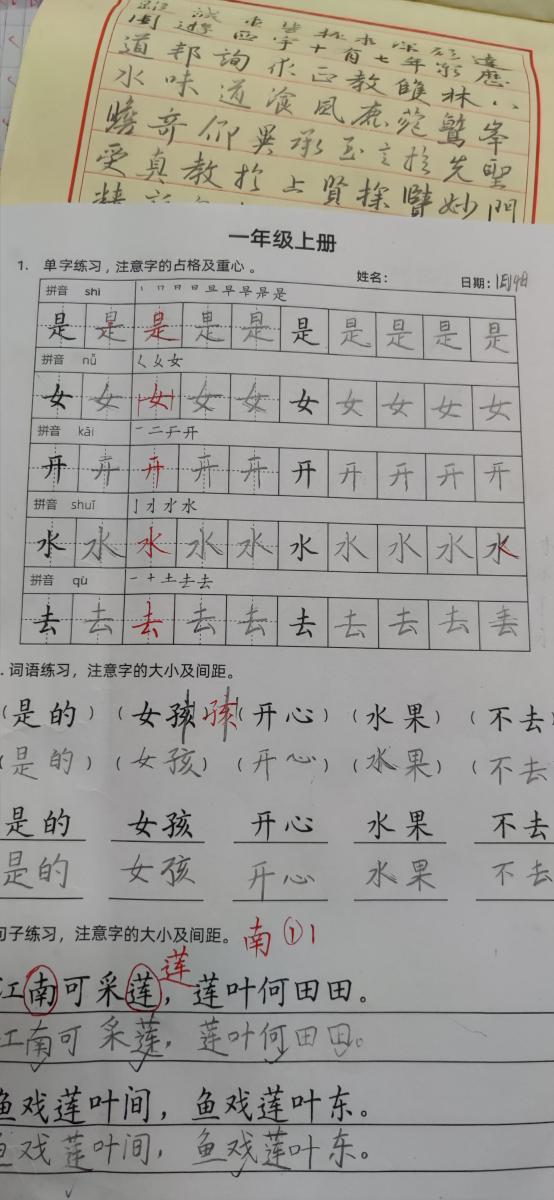 道邦詢求正教雙林八
水味道飡風鹿苑鷲峯
瞻奇仰異承至言於先聖
受真教於上賢探賾妙門
一年级上册
1. 单字练习，注意字的占格及重心。 姓名： 日期：
拼音 shì
是 是 是 是 是 是 是 是 是 是
拼音 nǚ
女 女 女 女 女 女 女 女 女 女
拼音 kāi
开 开 开 开 开 开 开 开 开 开
拼音 shuǐ
水 水 水 水 水 水 水 水 水 水
拼音 qù
去 去 去 去 去 去 去 去 去 去
词语练习，注意字的大小及间距。
（是的）（女孩）孩（开心）（水果）（不去）
（是的）（女孩）（开心）（水果）（不去）
是的 女孩 开心 水果 不去
是的 女孩 开心 水果 不去
句子练习，注意字的大小及间距。 南 ① 1
莲
江南可采莲，莲叶何田田。
江南可采莲，莲叶何田田。
鱼戏莲叶间，鱼戏莲叶东。
鱼戏莲叶间，鱼戏莲叶东。